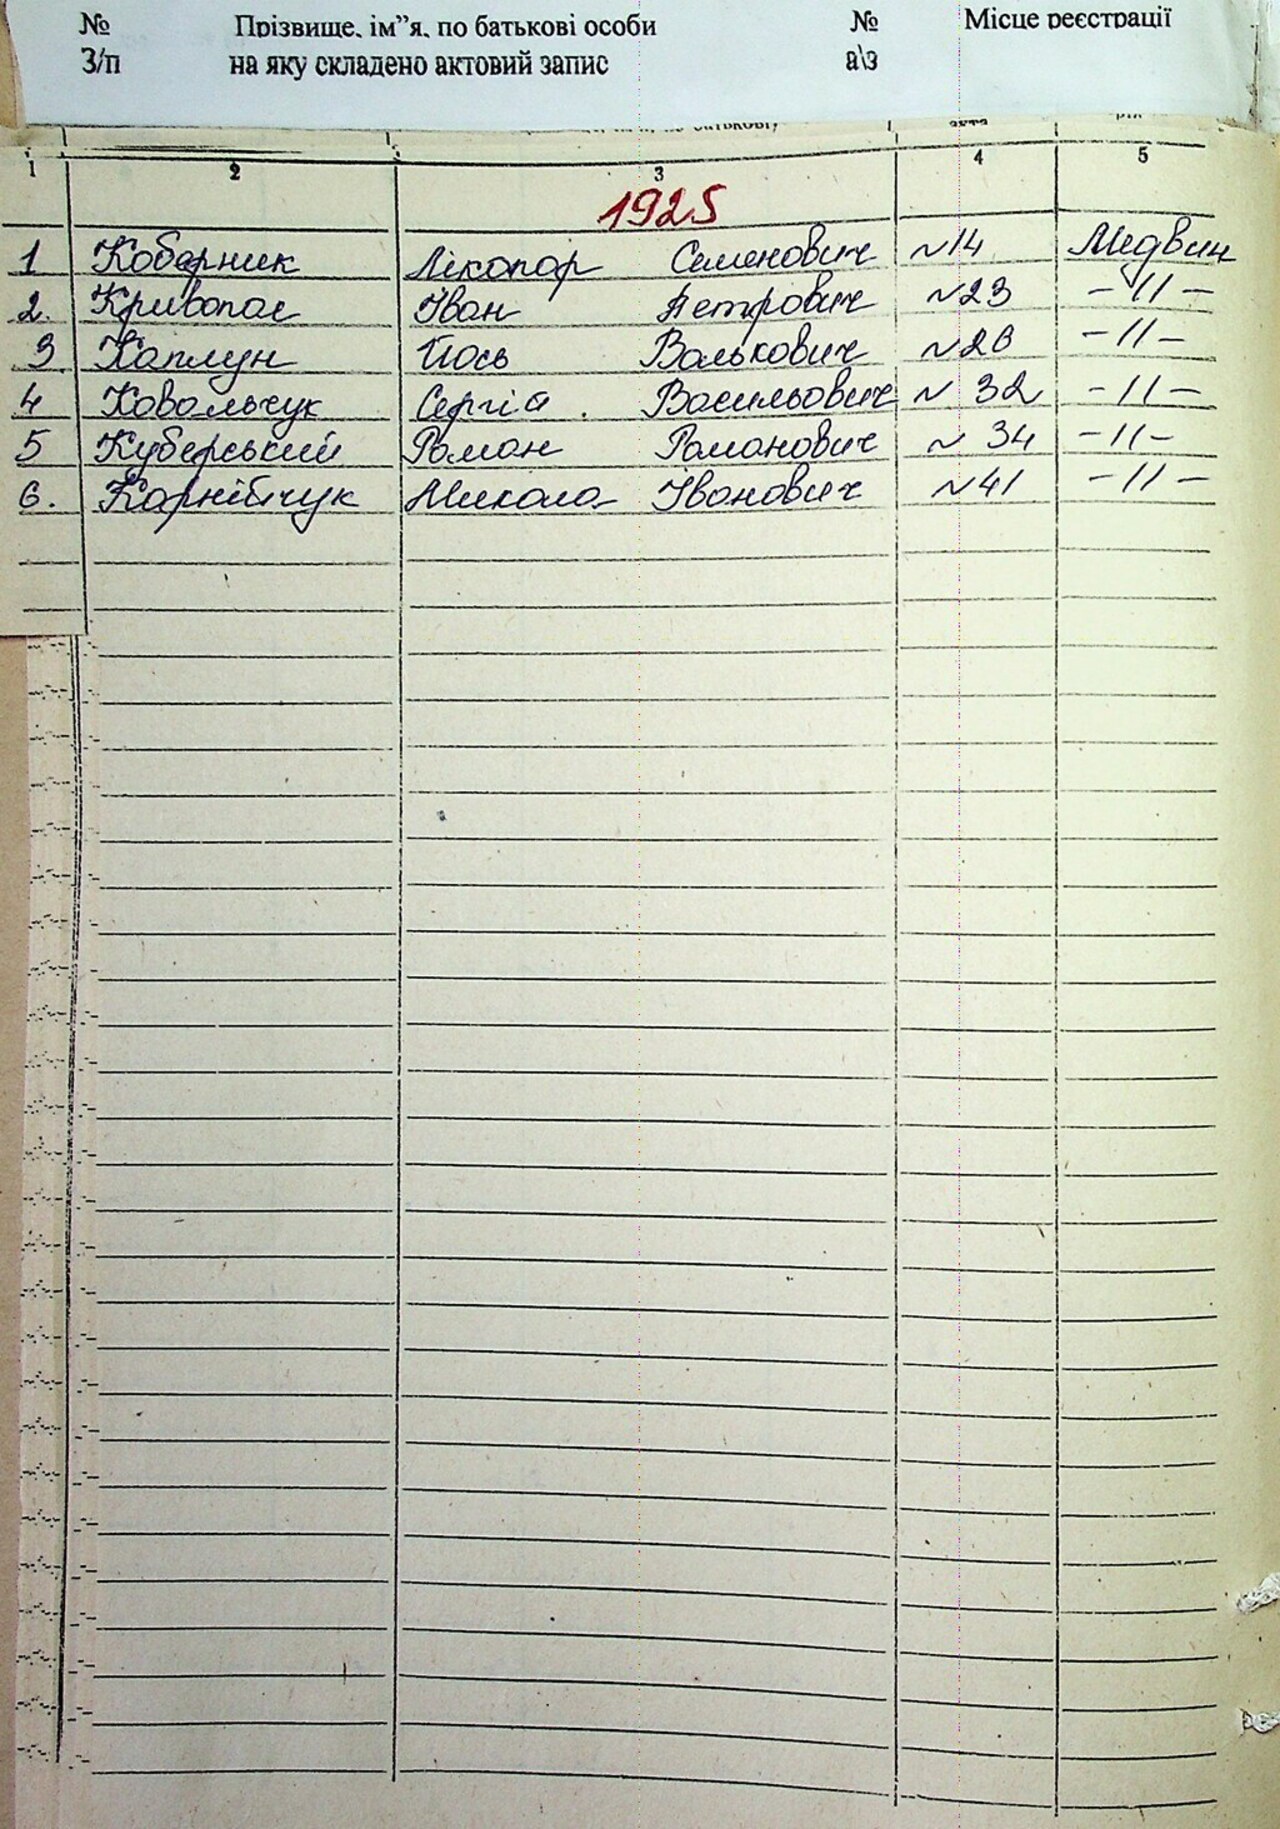 № Прізвище, ім”я, по батькові особи № Місце реєстрації
З/п на яку складено актовий запис а\з
1 2 3 4 5
1925
1 Коберник Лікопор Семенович №14 Медвин
2. Кривопас Іван Петрович №23 -11-
3 Каплун Йось Валькович №26 -11-
4 Ковальчук Сергій Васильович № 32 -11-
5 Куберський Роман Романович № 34 -11-
6. Карнійчук Микола Іванович №41 -11-